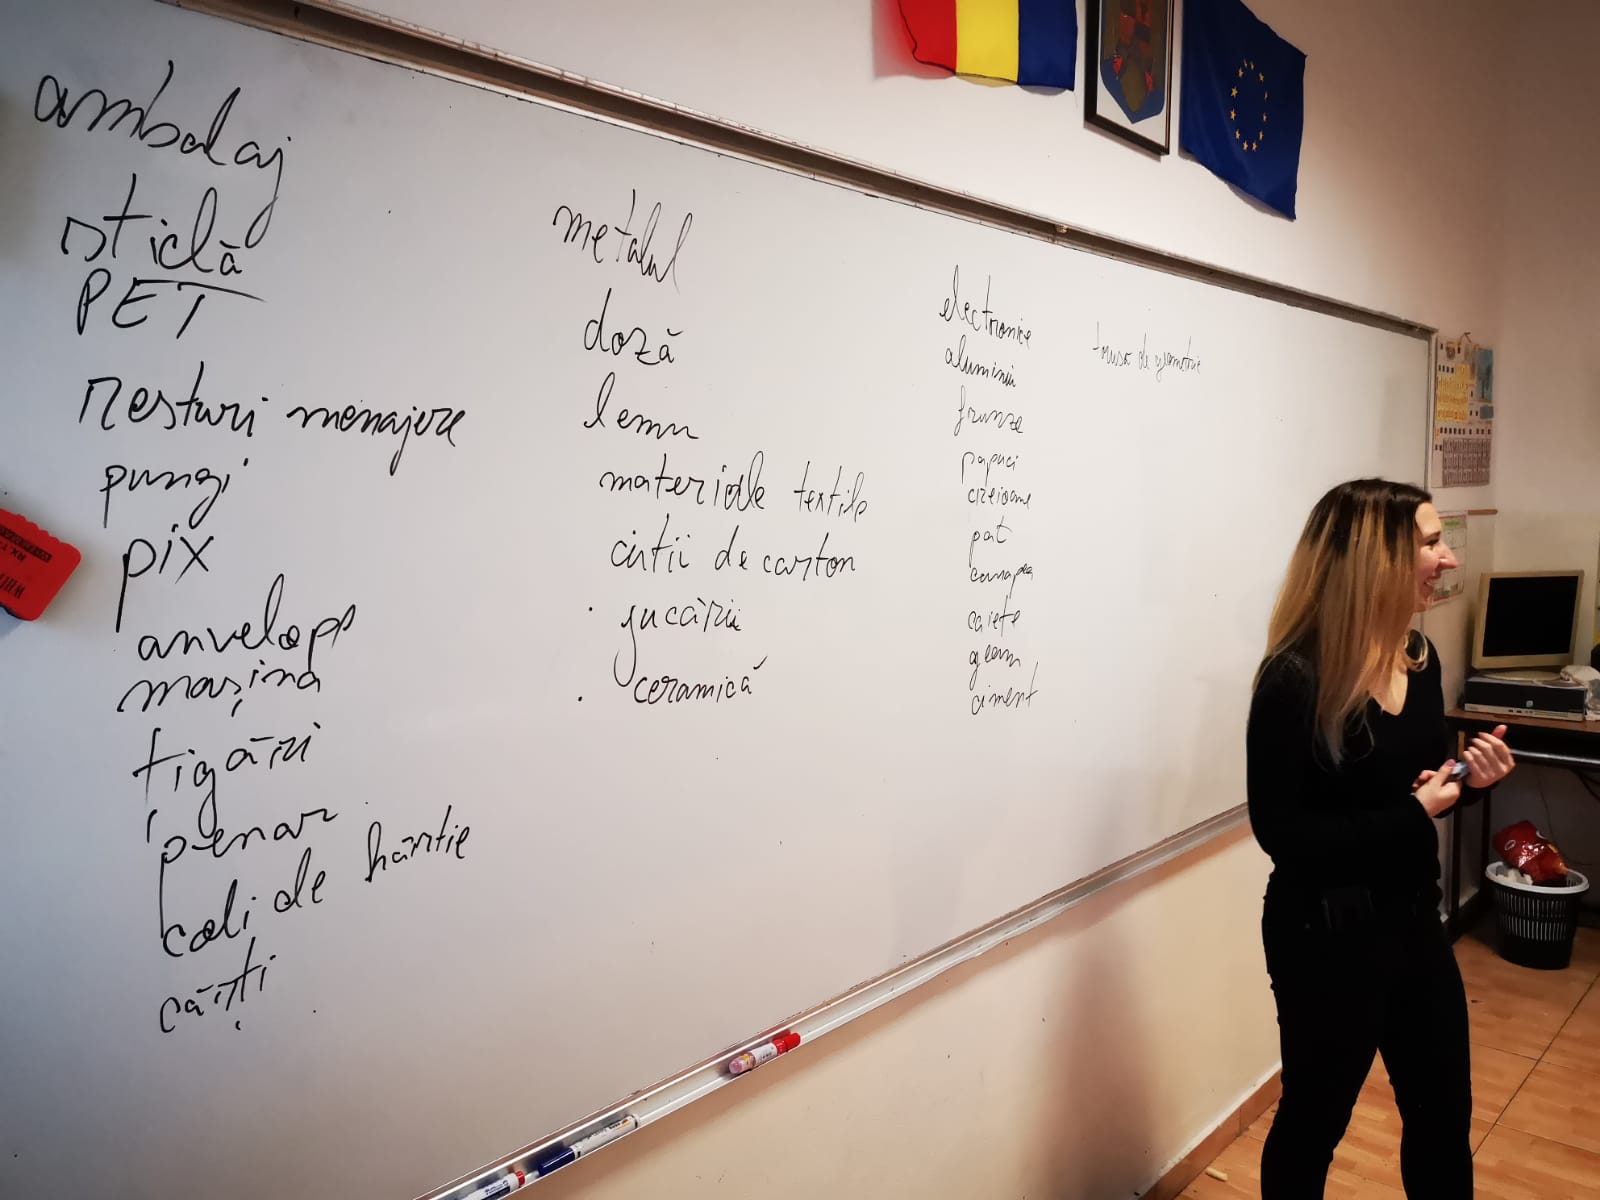 ambalaj
sticlă
PET
resturi menajere
pungi
pix
anvelope
mașina
țigări
penar
coli de hârtie
cărți
metalul
doză
lemn
materiale textile
cutii de carton
jucării
ceramică
electronice
aluminiu
frunze
papuci
creioane
pat
canapea
caiete
geam
ciment
trusa de geometrie